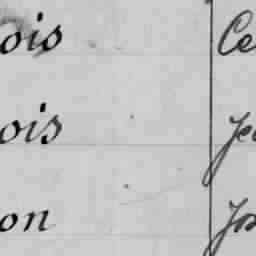 ois Ce
ois Je
on Jos